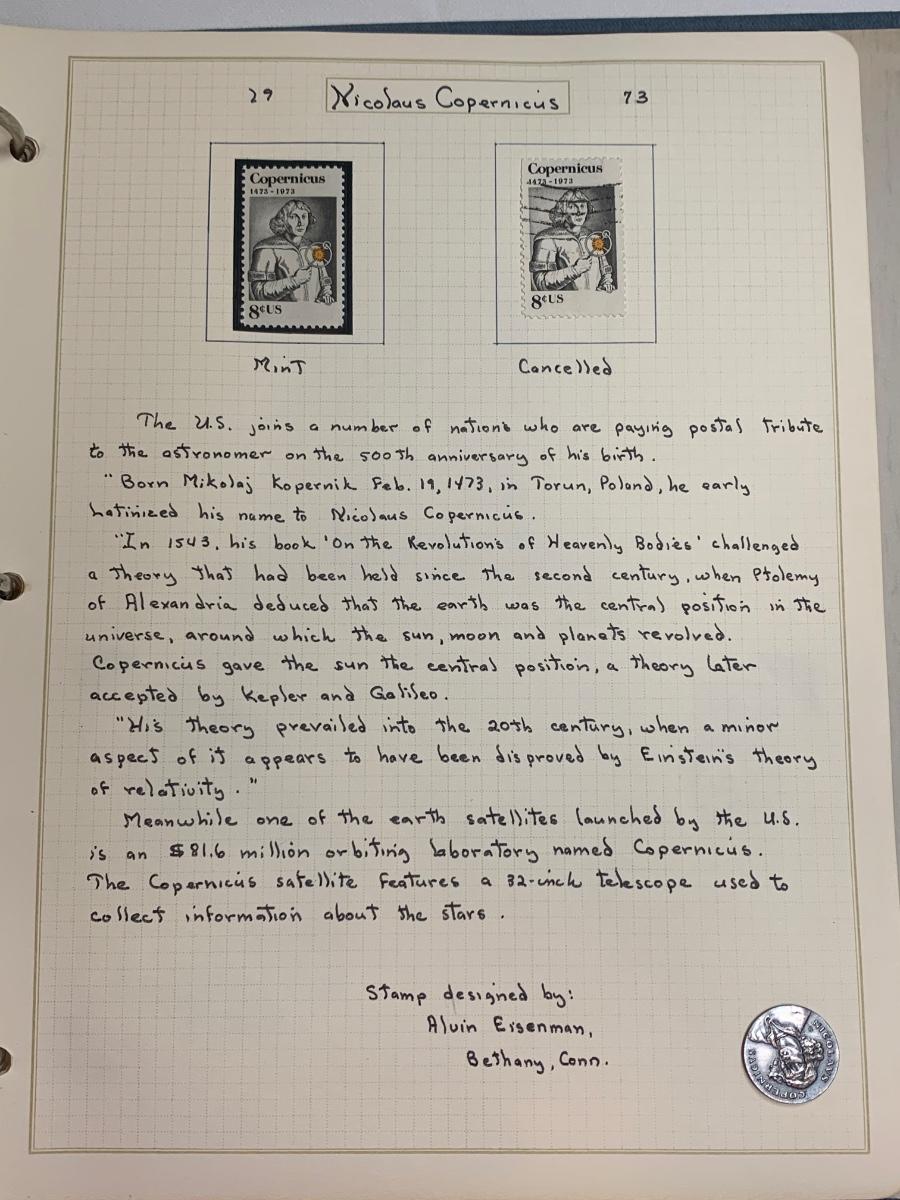 29 Nicolaus Copernicus 73
Copernicus
1473-1973
8¢US
Copernicus
1473-1973
8¢US
Mint Cancelled
The U.S. joins a number of nations who are paying postal tribute
to the astronomer on the 500th anniversary of his birth.
"Born Mikolaj Kopernik Feb. 19, 1473, in Torun, Poland, he early
Latinized his name to Nicolaus Copernicus.
"In 1543, his book 'On the Revolutions of Heavenly Bodies' challenged
a theory that had been held since the second century, when Ptolemy
of Alexandria deduced that the earth was the central position in the
universe, around which the sun, moon and planets revolved.
Copernicus gave the sun the central position, a theory later
accepted by Kepler and Galileo.
"His theory prevailed into the 20th century, when a minor
aspect of it appears to have been disproved by Einstein's theory
of relativity."
Meanwhile one of the earth satellites launched by the U.S.
is an $81.6 million orbiting laboratory named Copernicus.
The Copernicus satellite features a 32-inch telescope used to
collect information about the stars.
Stamp designed by:
Alvin Eisenman,
Bethany, Conn.
NICOLAVS COPERNICVS